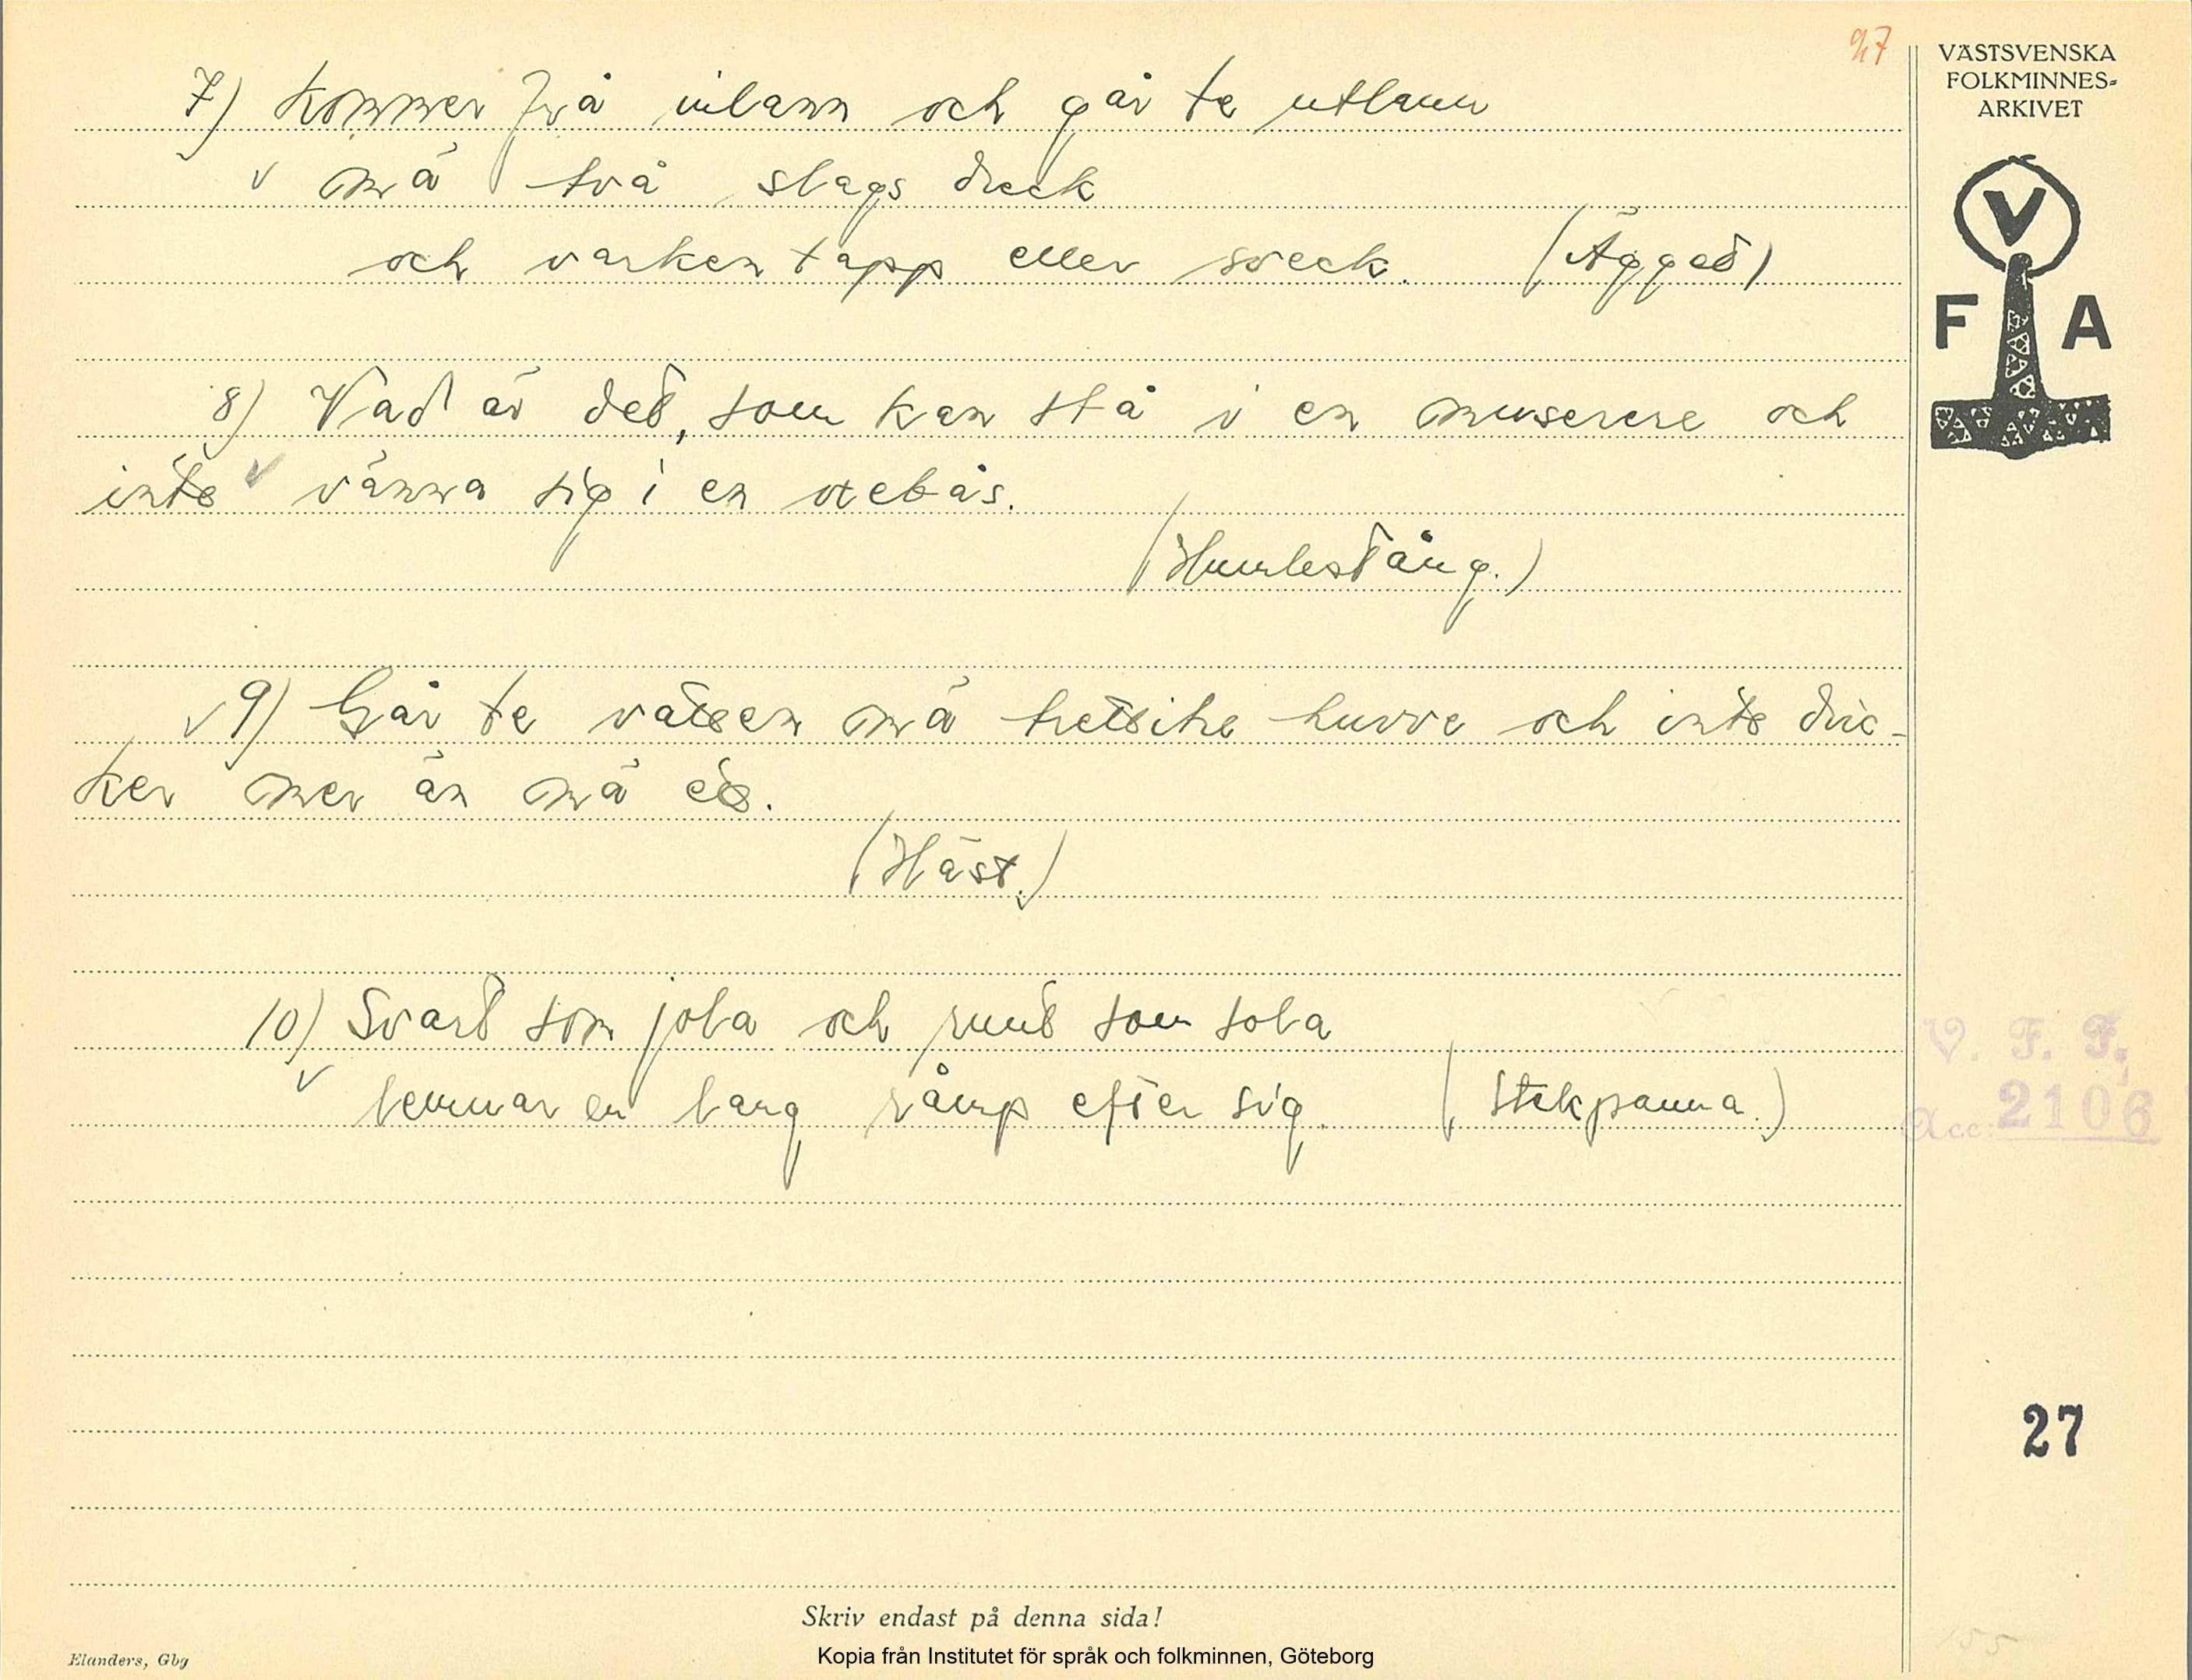 27
VÄSTSVENSKA
FOLKMINNES=
ARKIVET
V
F A
7) Kommer frå inlann och går te utlann
v mä två slags dreck
och varken tapp eller sveck. (Ägget)
8) Vad är det, som kan stå i en muserere och
inte v vänna sig i en oxebås.
(Humlestång.)
v 9) Går te vatten mä huvve och inte dric-
ker mer än mä ett.
(Häst.)
10) Svart som jola och runt som sola
v lemnar en lang rämp efter sig. (Stekpanna.)
V. F. F.
Acc: 2106
27
Skriv endast på denna sida!
Kopia från Institutet för språk och folkminnen, Göteborg
Elanders, Gbg
155